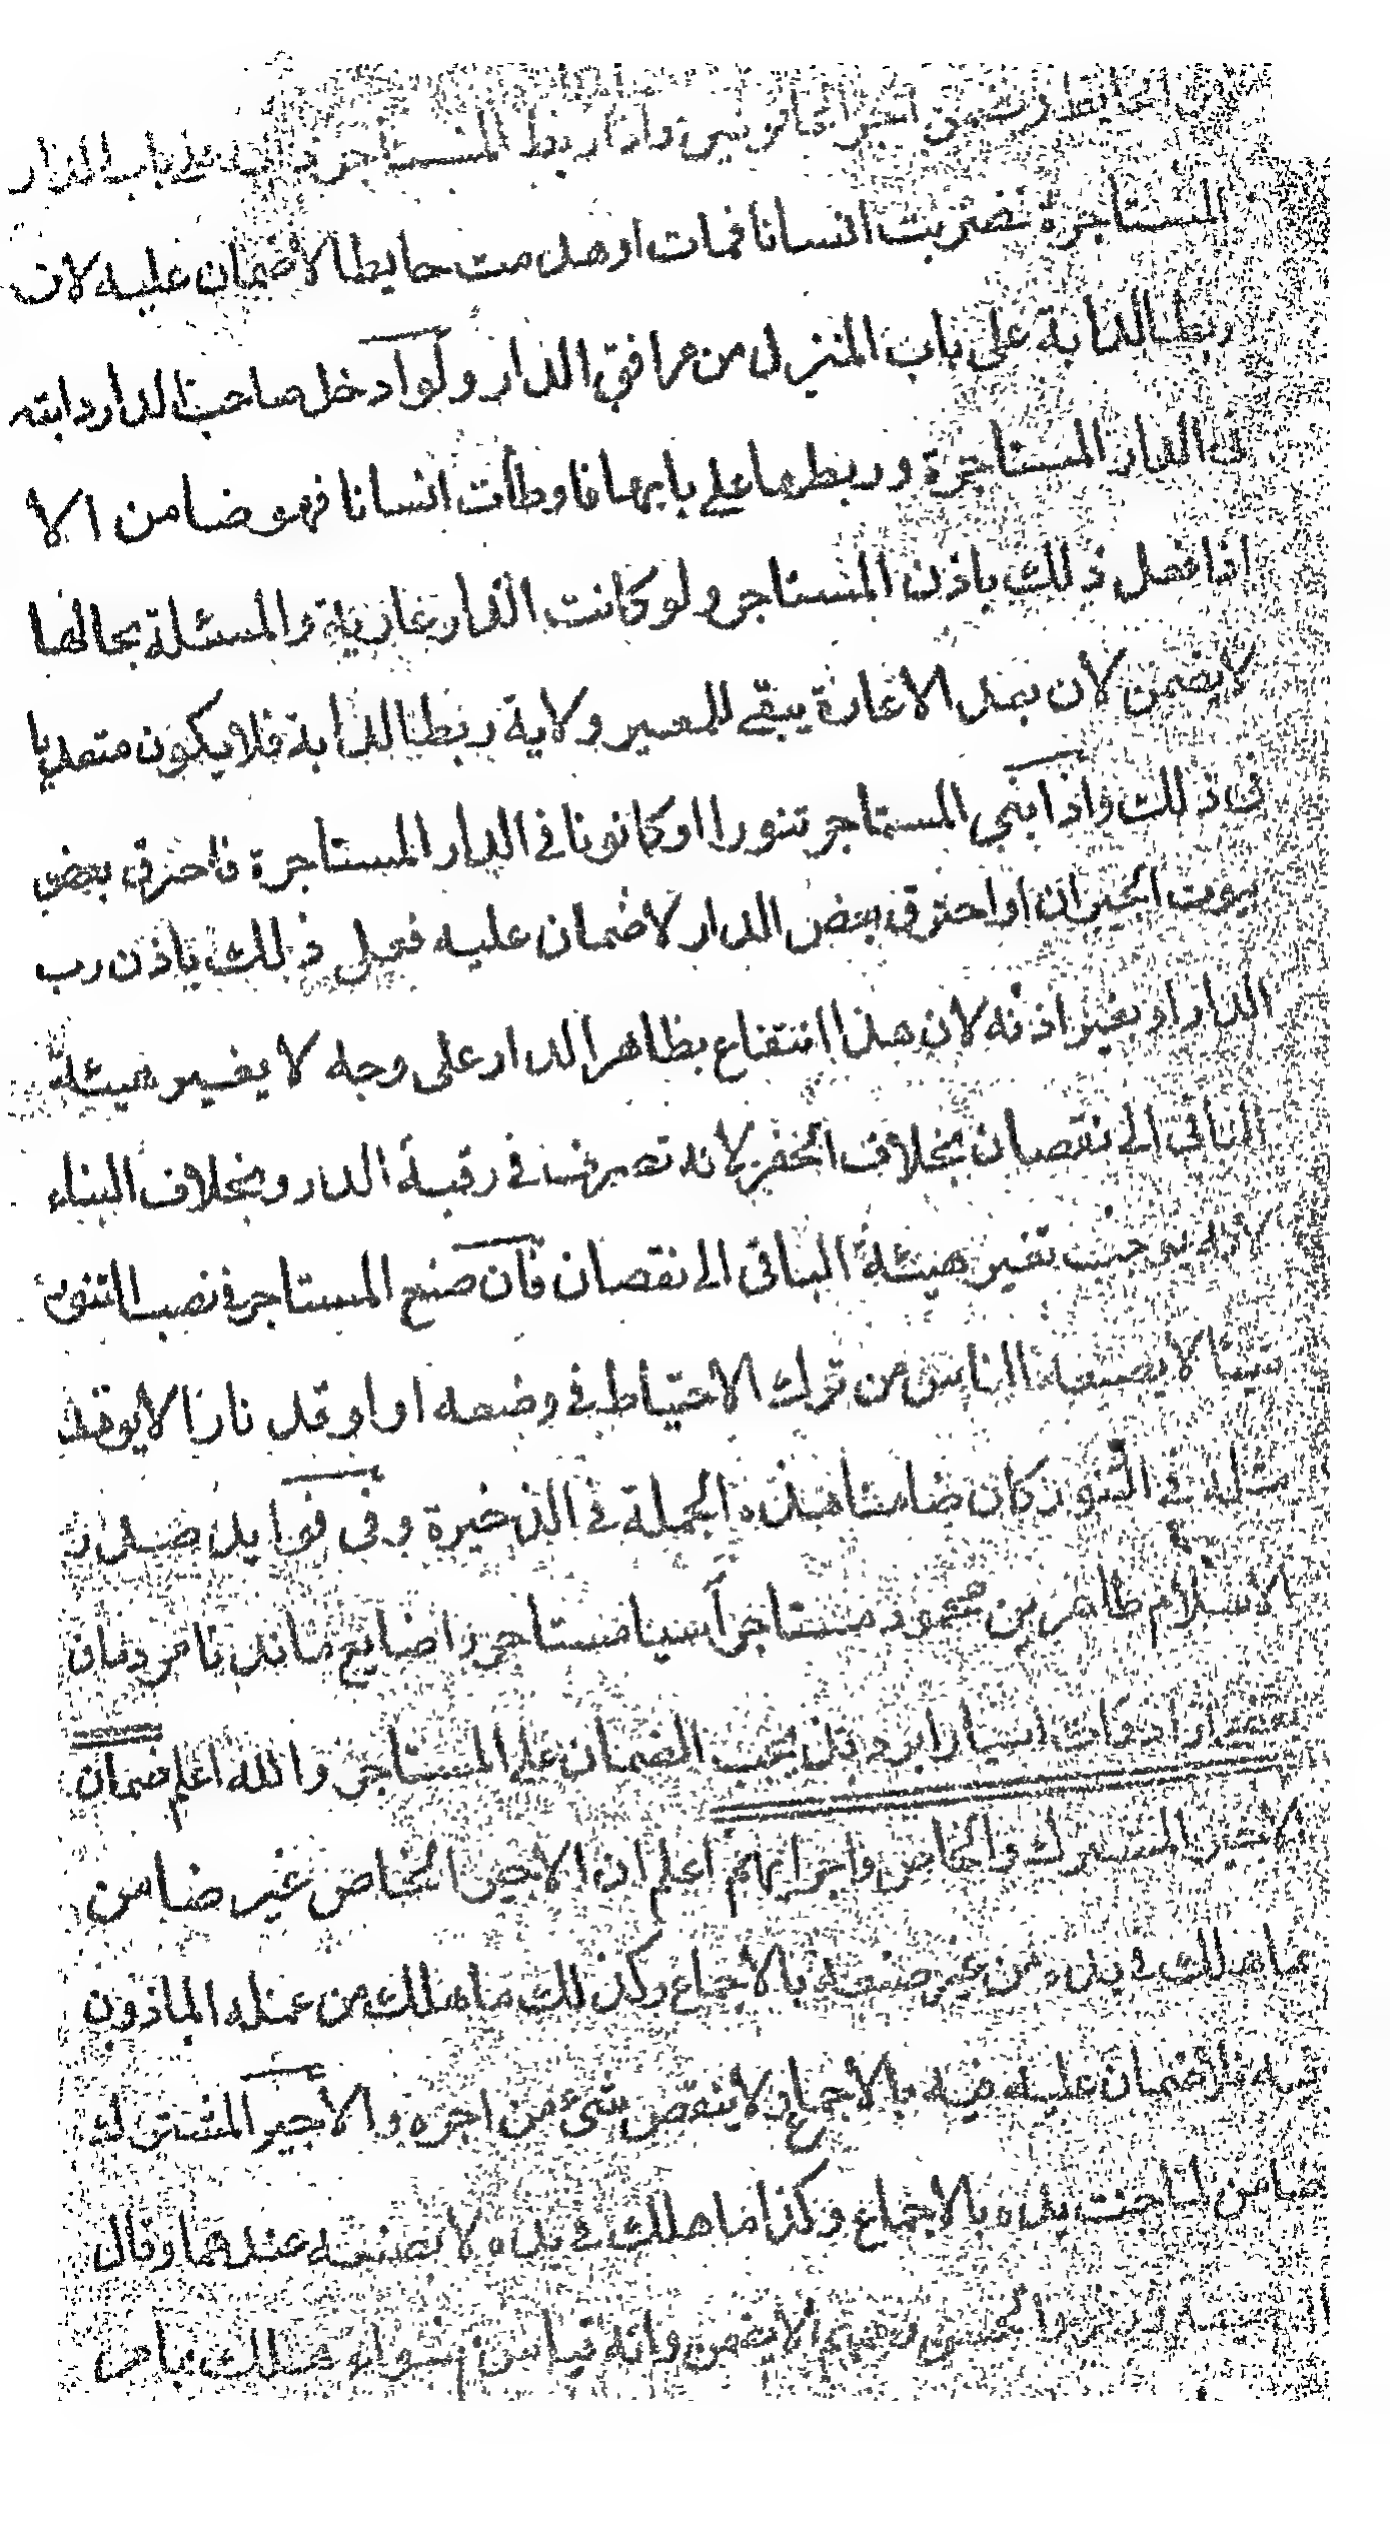 من الحائط ويضمن اجر الحانوتين واذا ربط المستاجر دابته على باب الدار
المستاجرة فضربت انسانا فمات او هدمت حايطا لا ضمان عليه لان
ربط الدابة على باب المنزل من مرافق الدار ولو ادخل صاحب الدار دابته
فى الدار المستاجرة وربطها على بابها فاوطأت انسانا فهو ضامن الا
اذا فعل ذلك باذن المستاجر ولو كانت الدار عارية والمسئلة بحالها
لا يضمن لان بعد الاعارة يبقى للمعير ولاية ربط الدابة فلا يكون متعديا
فى ذلك واذا بنى المستاجر تنورا او كانونا فى الدار المستاجرة فاحترق بعض
بيوت الجيران او احترق بعض الدار لا ضمان عليه فعل ذلك باذن رب
الدار او بغير اذنه لان هذا انتفاع بظاهر الدار على وجه لا يغير هيئة
الباقى الى نقصان بخلاف الحفر لانه تصرف فى رقبة الدار وبخلاف البناء
لانه يوجب تغير هيئة الباقى الى نقصان فان صنع المستاجر فى نصب التنور
شيئا لا يصنعه الناس من ترك الاحتياط فى وضعه او اوقد نارا لا يوقد
مثله فى التنور كان ضامنا هذه الجملة فى الذخيرة وفى فوايد صدر
الاسلام طاهر بن محمود مستاجر اسيا مستاجر را ضايع ماند تا مردمان
بعضى از ادوات اسيا را ببردند يجب الضمان على المستاجر والله اعلم ضمان
الاجير المشترك والخاص واجرائهم اعلم ان الاجير الخاص غير ضامن
ما هلك فى يده من غير صنعه بالاجماع وكذلك ما هلك من عمله الماذون
فيه لا ضمان عليه فيه بالاجماع ولا ينقص شئ من اجره والاجير المشترك
ضامن لما جنت يده بالاجماع وكذا ما هلك فى يده لا بصنعه عندهما وقال
ابو حنيفة لا يضمن وانه قياس سواء هلك بامر